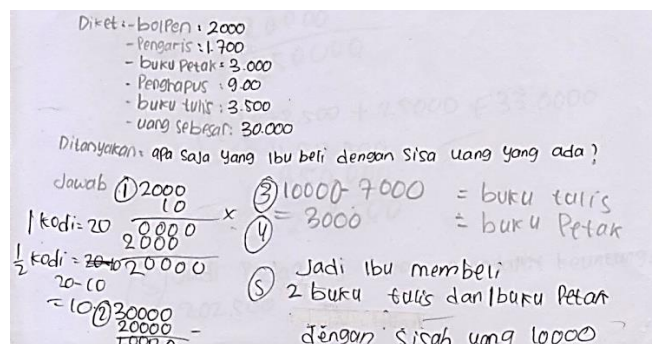 Diket :- bolpen : 2000
- Pengaris : 1.700
- buku Petak : 3.000
- Penghapus : 9.00
- buku tulis : 3.500
- uang sebesar : 30.000
Ditanyakan : apa saja yang Ibu beli dengan sisa uang yang ada ?
Jawab ① 2000
10 x
1 kodi = 20 0000
2000
½ kodi = 20-10 20000
20-10
= 10
② 30000
20000 -
10000
③ 10000 - 7000 = buku tulis
④ = 3000 = buku Petak
⑤ Jadi Ibu membeli
2 buku tulis dan 1 buku Petak
dengan sisah uang 10000